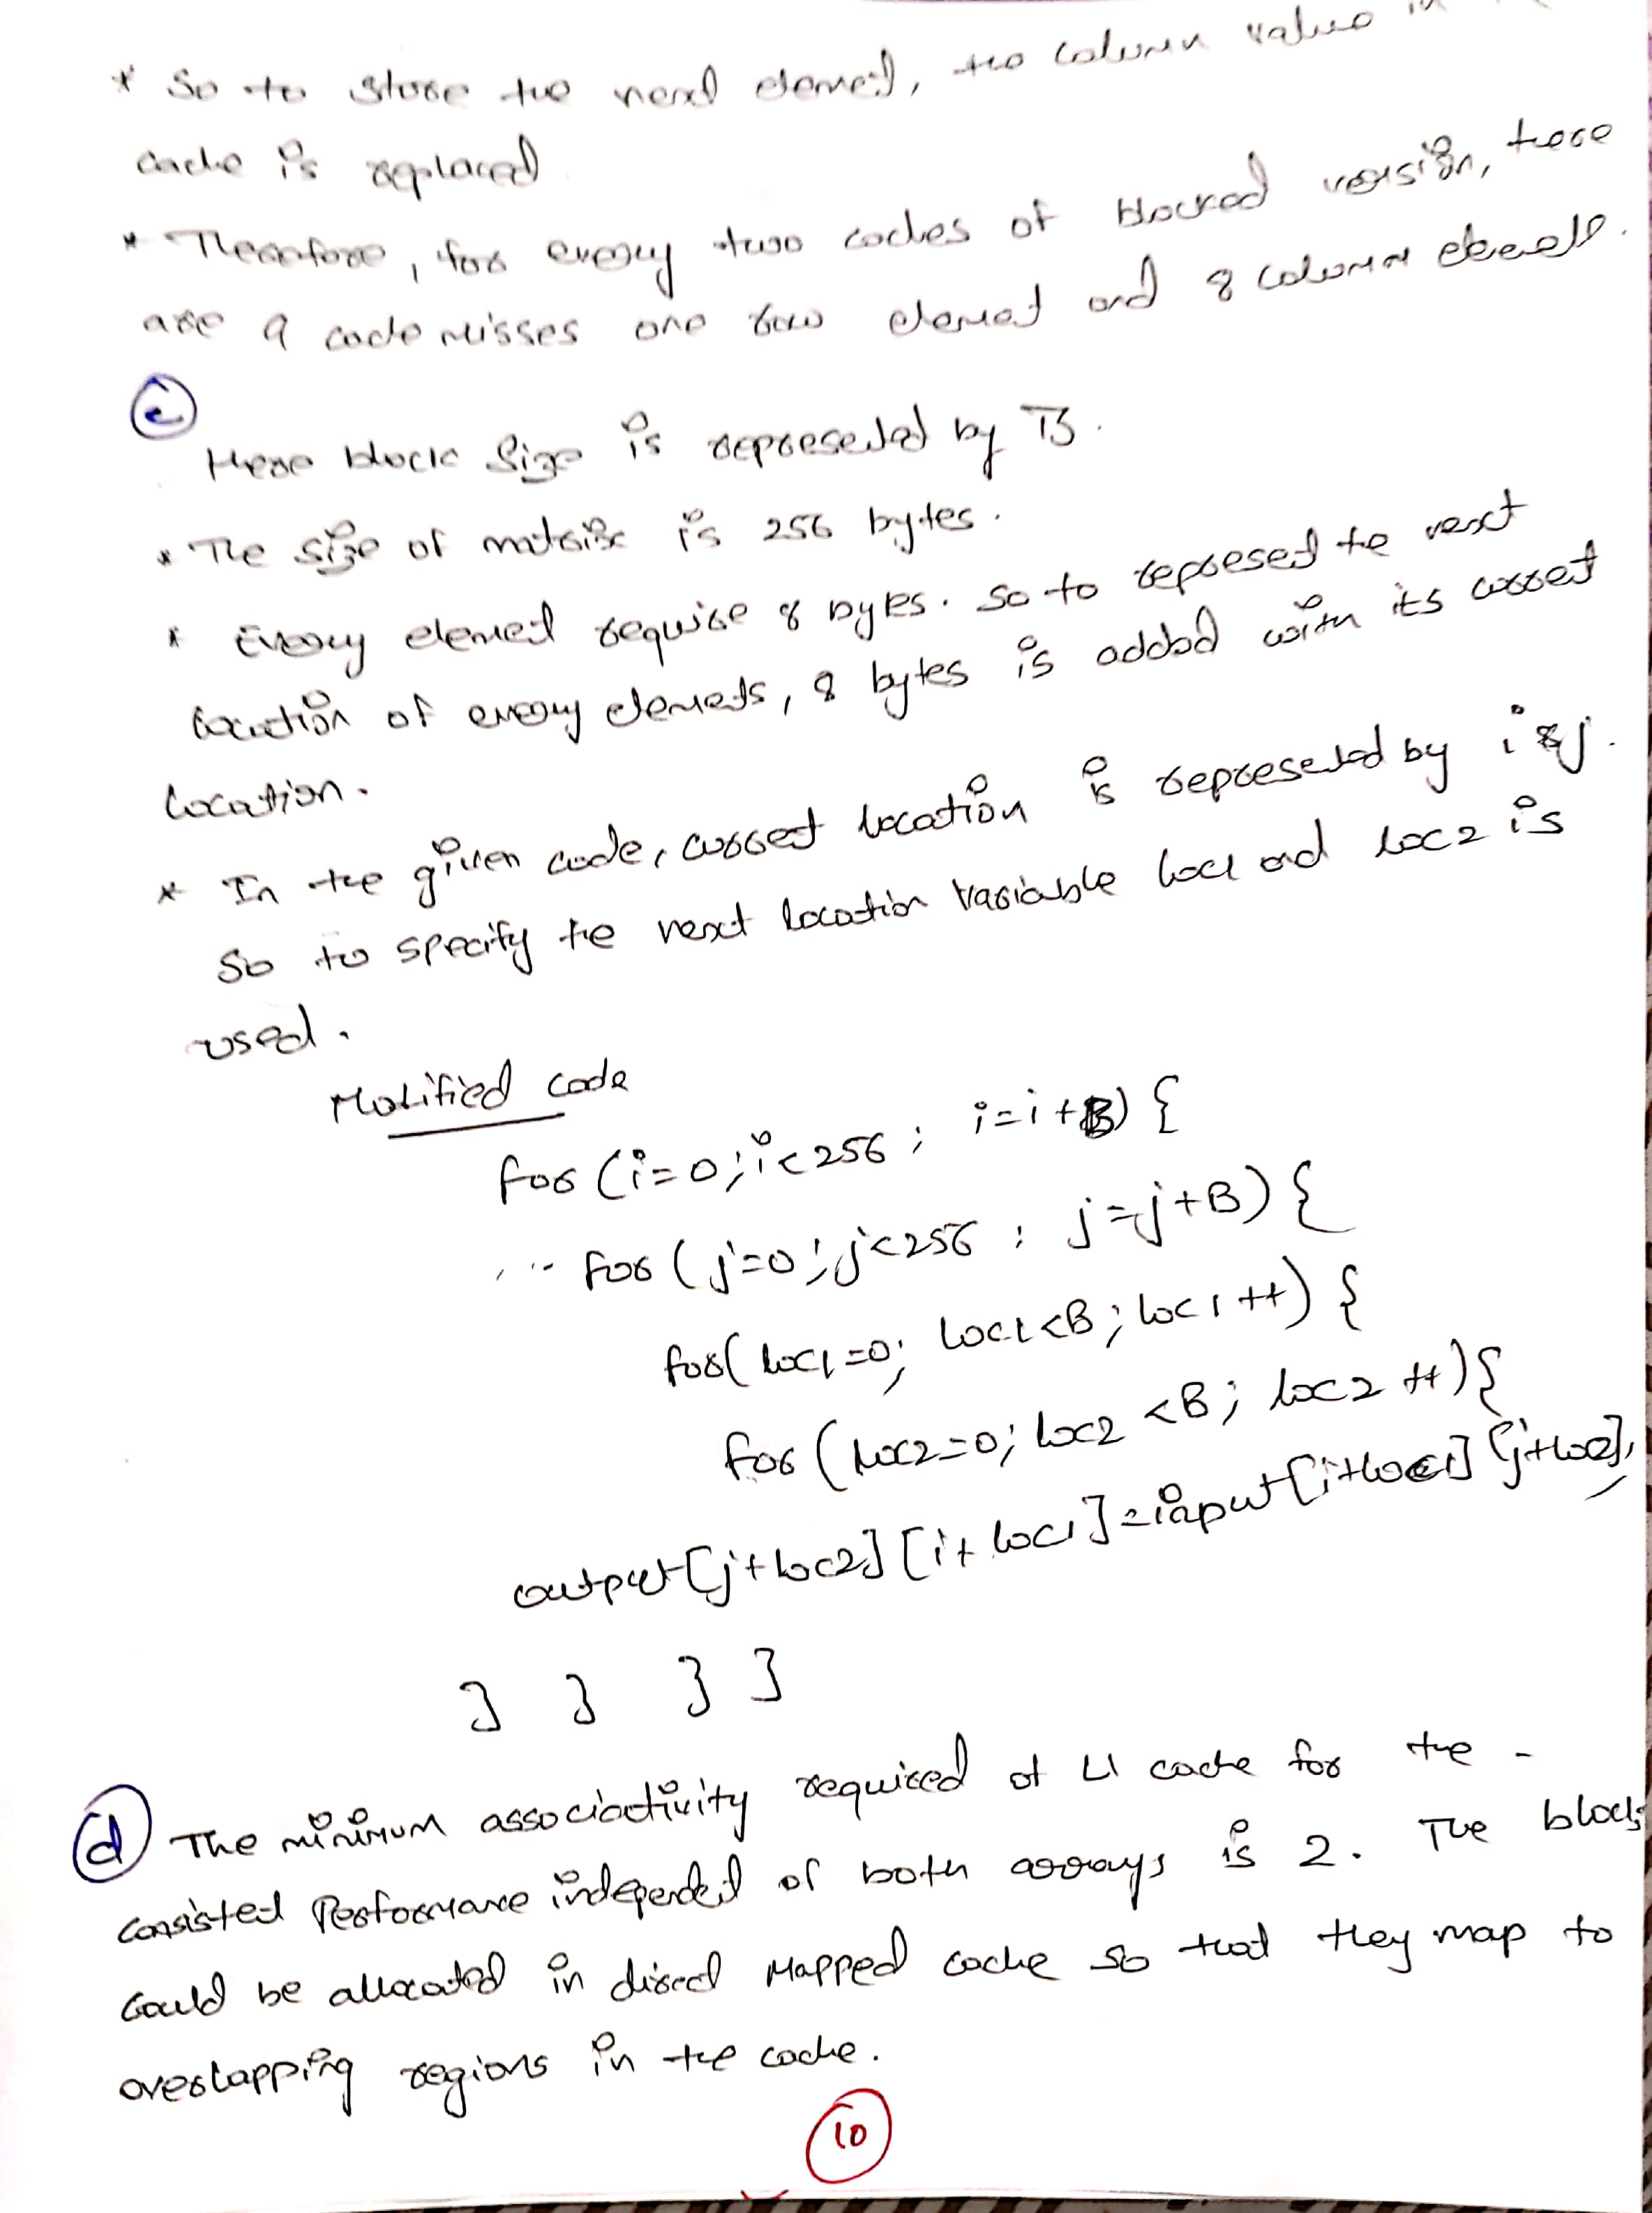 * So to store the next element, the column value in
cache is replaced
* Therefore, for every two caches of blocked version, there
are 9 cache misses one row element and 8 column elements.
c
Here block size is represented by B.
* The size of matrix is 256 bytes.
* Every element require 8 bytes. So to represent the next
location of every elements, 8 bytes is added with its current
location.
* In the given code, current location is represented by i & j.
So to specify the next location variable loc1 and loc2 is
used.
Modified code
for (i=0; i<256; i=i+B) {
for (j=0; j<256; j=j+B) {
for( loc1=0; loc1<B; loc1++) {
for (loc2=0; loc2<B; loc2++){
output[j+loc2][i+loc1]=input[i+loc1][j+loc2];
} } } }
d The minimum associativity required of L1 cache for the -
consistent Performance independent of both arrays is 2. The blocks
could be allocated in direct mapped cache so that they map to
overlapping regions in the cache.
10